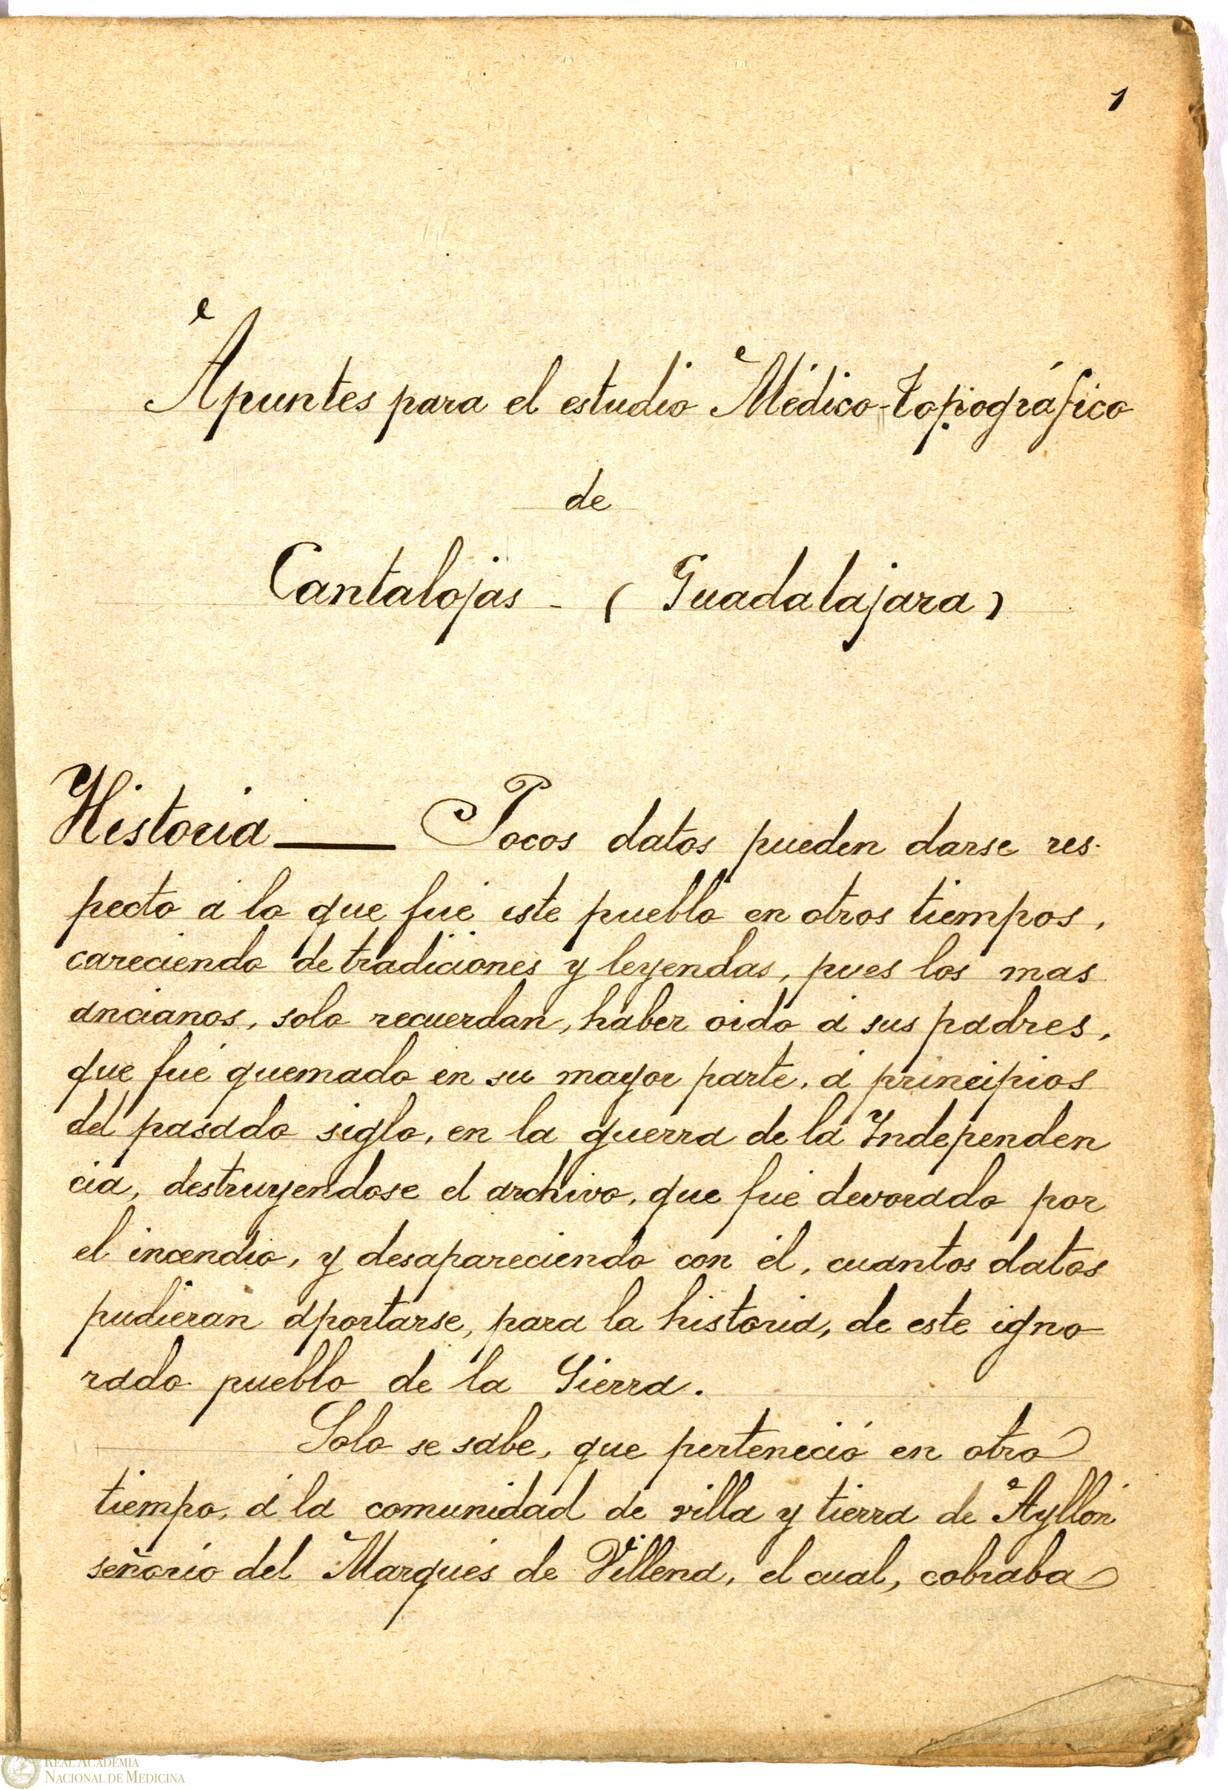 1
Apuntes para el estudio Médico-topográfico
de
Cantalojas - (Guadalajara)
Historia — Pocos datos pueden darse res-
pecto á lo que fué este pueblo en otros tiempos,
careciendo de tradiciones y leyendas, pues los mas
ancianos, solo recuerdan, haber oido á sus padres,
que fué quemado en su mayor parte, á principios
del pasado siglo, en la guerra de la Independen
cia, destruyendose el archivo, que fue devorado por
el incendio, y desapareciendo con él, cuantos datos
pudieran aportarse, para la historia, de este igno-
rado pueblo de la Sierra.
Solo se sabe, que perteneció en otro
tiempo, á la comunidad de villa y tierra de Ayllón
señorio del Marqués de Villena, el cual, cobraba
REAL ACADEMIA
NACIONAL DE MEDICINA